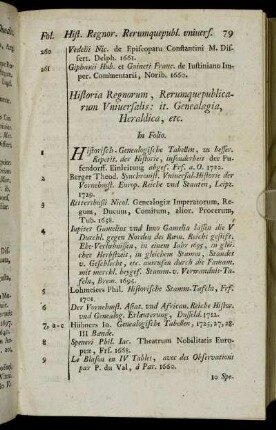 Fol. Hist. Regnor. Rerumquepubl. vniuers. 79
260 Vedelii Nic. de Episcopatu Constantini M. Dis-
sert. Delph. 1661.
261 Giphanii Hub. et Goineti Franc. de Iustiniano Im-
per. Commentarii, Norib. 1660.
Historia Regnorum, Rerumquepublica-
rum Vniuersalis: it. Genealogia,
Heraldica, etc.
In Folio.
1 Historisch-Genealogische Tabellen, zu besser.
Repetit. der Historie, insonderheit der Pu-
fendorff. Einleitung abgef. Frf. a. O. 1702.
2 Berger Theod. Synchronist. Vniversal-Historie der
Vornehmst. Europ. Reiche und Staaten, Leipz.
1729.
3 Rittershusii Nicol. Genealogiæ Imperatorum, Re-
gum, Ducum, Comitum, alior. Procerum,
Tub. 1658.
4 Iupiter Gamelius und Iuno Gamelia lassen die V
Durchl. gegen Norden des Röm. Reichs gestiffte.
Ehe-Verlobnissen, in einem Iahr 1695, in glei-
cher Herbstzeit, in gleichem Stamm, Standes
v. Geschlecht, etc. ausrufen durch die Famam,
mit merckl. bezgef. Stamm- v. Verwandnis-Ta-
feln, Brem. 1695.
5 Lohmeiers Phil. Historische Stamm-Tafeln, Frf.
1701.
6 Der Vornehmst. Asiat. und African. Reiche Histor.
und Genealog. Erläuterung, Dusseld. 1712.
7, a-c Hübners Io. Genealogische Tabellen, 1725, 27, 28.
III Bande.
8 Speneri Phil. Iac. Theatrum Nobilitatis Euro-
pen, Frf. 1668.
9 Le Blason en IV Tables, avec des Observations
par P. du Val, à Par. 1660.
10 Spe.